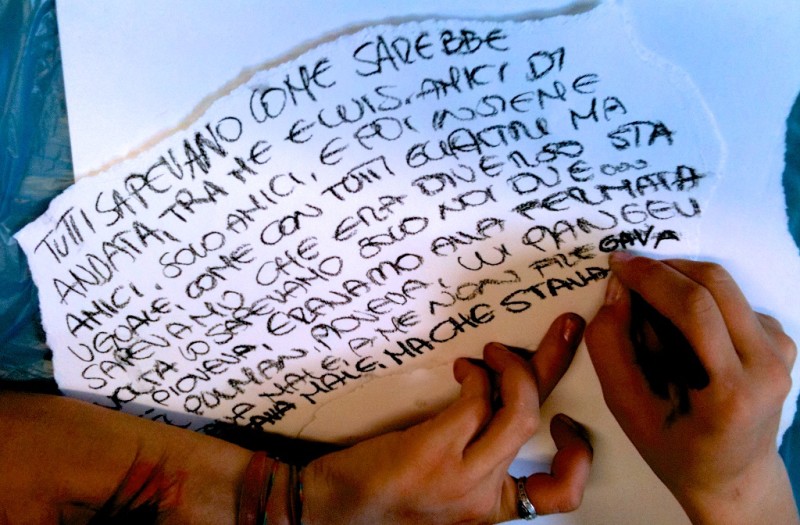 TUTTI SAPEVANO COME SAREBBE
ANDATA, TRA ME E LUIS. AMICI DI
AMICI, SOLO AMICI, E POI INSIEME
UGUALE, COME CON TUTTI GLI ALTRI MA
SAPEVAMO CHE ERA DIVERSO STA
VOLTA LO SAPEVANO SOLO NOI DUE
PIOVEVA, ERAVAMO ALLA FERMATA
PULLMAN, PIOVEVA, LUI PIANGEU
MALE, A ME NON FREGAVA
MALE, MA CHE STAVA